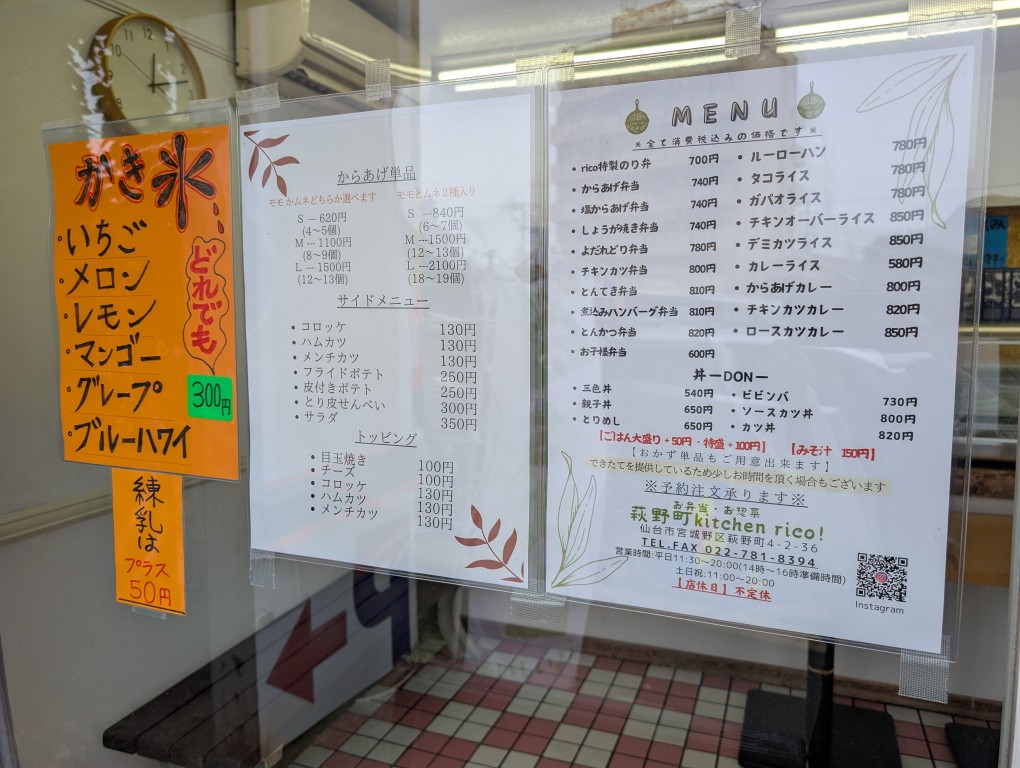 かき氷
いちご
メロン
レモン
マンゴー
グレープ
ブルーハワイ
どれでも
300円
練乳は
プラス
50円
からあげ単品
モモかムネどちらか選べます
S ― 620円
(4～5個)
M ― 1100円
(8～9個)
L ― 1500円
(12～13個)
モモとムネ2種入り
S ―840円
(6～7個)
M ―1500円
(12～13個)
L ―2100円
(18～19個)
サイドメニュー
• コロッケ 130円
• ハムカツ 130円
• メンチカツ 130円
• フライドポテト 250円
• 皮付きポテト 250円
• とり皮せんべい 300円
• サラダ 350円
トッピング
• 目玉焼き 100円
• チーズ 100円
• コロッケ 130円
• ハムカツ 130円
• メンチカツ 130円
MENU
※全て消費税込みの価格です※
• rico特製のり弁 700円
• からあげ弁当 740円
• 塩からあげ弁当 740円
• しょうが焼き弁当 740円
• よだれどり弁当 780円
• チキンカツ弁当 800円
• とんてき弁当 810円
• 煮込みハンバーグ弁当 810円
• とんかつ弁当 820円
• お子様弁当 600円
• ルーローハン 780円
• タコライス 780円
• ガパオライス 780円
• チキンオーバーライス 850円
• デミカツライス 850円
• カレーライス 580円
• からあげカレー 800円
• チキンカツカレー 820円
• ロースカツカレー 850円
丼ーDONー
• 三色丼 540円
• 親子丼 650円
• とりめし 650円
• ビビンバ 730円
• ソースカツ丼 800円
• カツ丼 820円
【ごはん大盛り+50円・特盛+100円】 【みそ汁 150円】
【おかず単品もご用意出来ます】
できたてを提供しているため少しお時間を頂く場合もございます
※予約注文承ります※
お弁当・お惣菜
萩野町kitchen rico!
仙台市宮城野区萩野町4-2-36
TEL.FAX 022-781-8394
営業時間:平日11:30～20:00(14時～16時準備時間)
土日祝:11:00～20:00
【店休日】不定休
Instagram